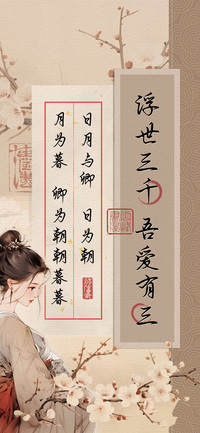 浮世三千 吾爱有三
日月与卿 日为朝
月为暮 卿为朝朝暮暮